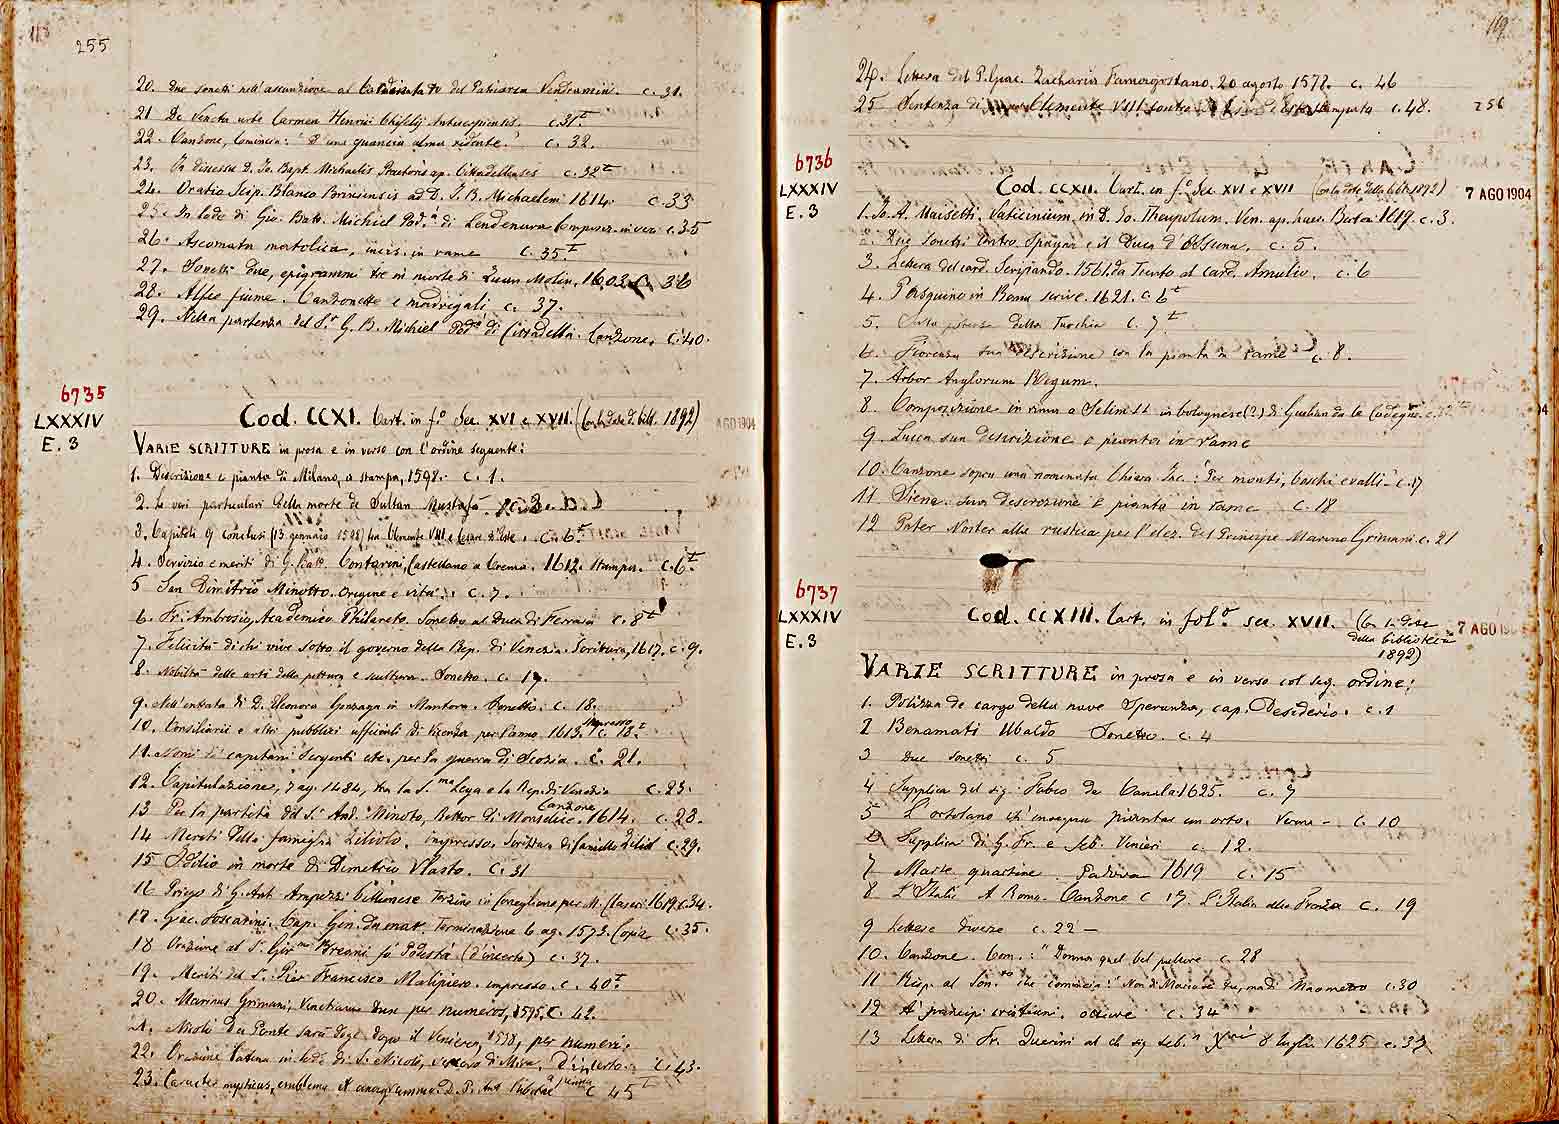 118
255
20. Due sonetti nell'assunzione al Cardinalato del Patriarca Vendramin. c. 31.
21 De Veneta urbe Carmen Henrici Chifelij Antuerpiensis. c. 31t.
22. Canzone, comincia: "D'una guancia alma ridente." c. 32.
23. In discessu D. Jo. Bapt. Michaelis Praetoris ap. Cittadellenses c. 32t
24. Oratio Scip. Blanco Brixiensis ad D. J. B. Michaelem 1614. c. 33
25. In lode di Gio. Batt. Michiel Pod.a di Lendenara Componim. in versi c. 35
26. Ascomata mertolica, incis. in rame c. 35t.
27. Sonetti due, epigrammi tre in morte di Zuan Molin, 1603. c. 36
28. Alfeo fiume. Canzonette e madrigali c. 37.
29. Nella partenza del S.r G. B. Michiel Pod.à di Cittadella. Canzone. c. 40.
6735
LXXXIV
E. 3
Cod. CCXI. Cart. in f.o Sec. XVI e XVII. (Con la dote d. bibl. 1892)
AGO 1904
VARIE SCRITTURE in prosa e in verso con l'ordine seguente:
1. Descrizione e pianta di Milano, a stampa, 1598. c. 1.
2. Le veri particulari della morte de Sultan Mustafà c. 3.
3. Capitoli conclusi (13 gennaio 1598) tra Clemente VIII e Cesare d'Este. c. 6t.
4. Servizio e meriti di G. Batt. Contarini, Castellano a Crema. 1612. Stampa. c. 6t.
5 San Dimitrio Minotto. Origine e vita. c. 7.
6. Fr. Ambrosio, Academico Philareto. Sonetto al Duca di Ferrara c. 8t
7. Felicità di chi vive sotto il governo della Rep. di Venezia. Scrittura, 1617. c. 9.
8. Nobiltà delle arti della pittura e scultura. Sonetto. c. 17.
9. Nell'entrata di D. Eleonora Gonzaga in Mantova. Sonetto. c. 18.
10. Consiliarii e altri pubblici ufficiali di Vicenza per l'anno 1613. Impresso c. 18t
11. Nomi di capitani Sergenti etc. per la guerra di Scozia. c. 21.
12. Capitulazione, 7 ag. 1484, tra la S.ma Lega e la Rep. di Venezia c. 23.
13 Per la partita del S.r Ant. Minoto, Rettor di Monselice. Canzone 1614. c. 28.
14 Meriti della famiglia Zilioli, impresso. Scrittura di Camillo Zilioli c. 29.
15 Idilio in morte di Demetrio Vlasto. c. 31
16 Priego di G. Ant. Ampezzi Cittonese Terzine in Conegliano per M. Claseri 1619. c. 34.
17. Giac. Foscarini. Cap. Gen. da mar. Terminazione 6 ag. 1573. Copia c. 35.
18 Orazione al S.r Gir.mo Bresani fù Podestà (d'incerto) c. 37.
19. Meriti del S. Pier Francesco Malipiero. impresso. c. 40t.
20. Marinus Grimani, Venetiarum dux per numeros, 1595. c. 42.
21. Nicolò Da Ponte sarà doge dopo il Venier, 1578, per numeri.
22. Orazione latina in lode di S. Nicolò, vescovo di Mira. D'incerto. c. 43.
23. Caracter mysticus, emblema et anagramma D. P. Ant. c. 45t
119
24. Lettera del P. Gerac. Zacharia Famagostano. 20 agosto 1572. c. 46
25 Sentenza di Clemente VIII contro Cesare d'Este stampata c. 48.
256
6736
LXXXIV
E. 3
Cod. CCXII. Cart. in f.o Sec. XVI e XVII (con la dote della bibl. 1892)
7 AGO 1904
1. Jo. A. Maisetti. Vaticinium in D. Jo. Theupolum. Ven. ap. haer. Bertoni 1619. c. 3.
2. Due sonetti contro Spagna e il Duca d'Ossuna. c. 5.
3. Lettera del card. Seripando. 1561. da Trento al card. Amulio. c. 6
4. Pasquino in Roma scrive. 1621. c. 6t
5. Sulla potenza della Turchia c. 7t
6. Fiorenza sua descrizione con la pianta in rame c. 8.
7. Arbor Anglorum Regum.
8. Composizione in rima a Selim II in bolognese (?) di
9. Lucca sua descrizione e pianta in rame
10. Canzone sopra una nominata Chiara Inc.: "Per monti, boschi e valli" c. 17
11 Siena. sua descrizione e pianta in rame c. 18
12 Pater Noster alla rustica per l'elez. del Principe Marino Grimani. c. 21
6737
LXXXIV
E. 3
Cod. CCXIII. Cart. in fol.o sec. XVII. (Con la dote della biblioteca 1892)
7 AGO 1904
VARIE SCRITTURE in prosa e in verso col seg. ordine:
1. Polizza de cargo della nave Speranza, cap. Desiderio. c. 1
2 Benamati Ubaldo Sonetto. c. 4
3 due sonetti c. 5
4 Supplica del sig. Fabio da Canal 1625. c. 7
5 L'ortolano ch'insegna piantar un orto. Versi - c. 10
6 Supplica di G. Fr. e Seb. Venieri c. 12.
7 Marte quartine. Padova 1619 c. 15
8 L'Italia A Roma. Canzone c 17. L'Italia alla Franza c. 19
9 Lettere diverse c. 22 -
10. Canzone. Com.: "Donna quel bel pallore c. 28
11 Risp. al Son.to che comincia: "Non di Macone tu, ma di Maometto c. 30
12 A' principi cristiani. ottave c. 34
13 Lettera di Fr. Querini al cl. sig. Seb.n 8 luglio 1625 c. 37